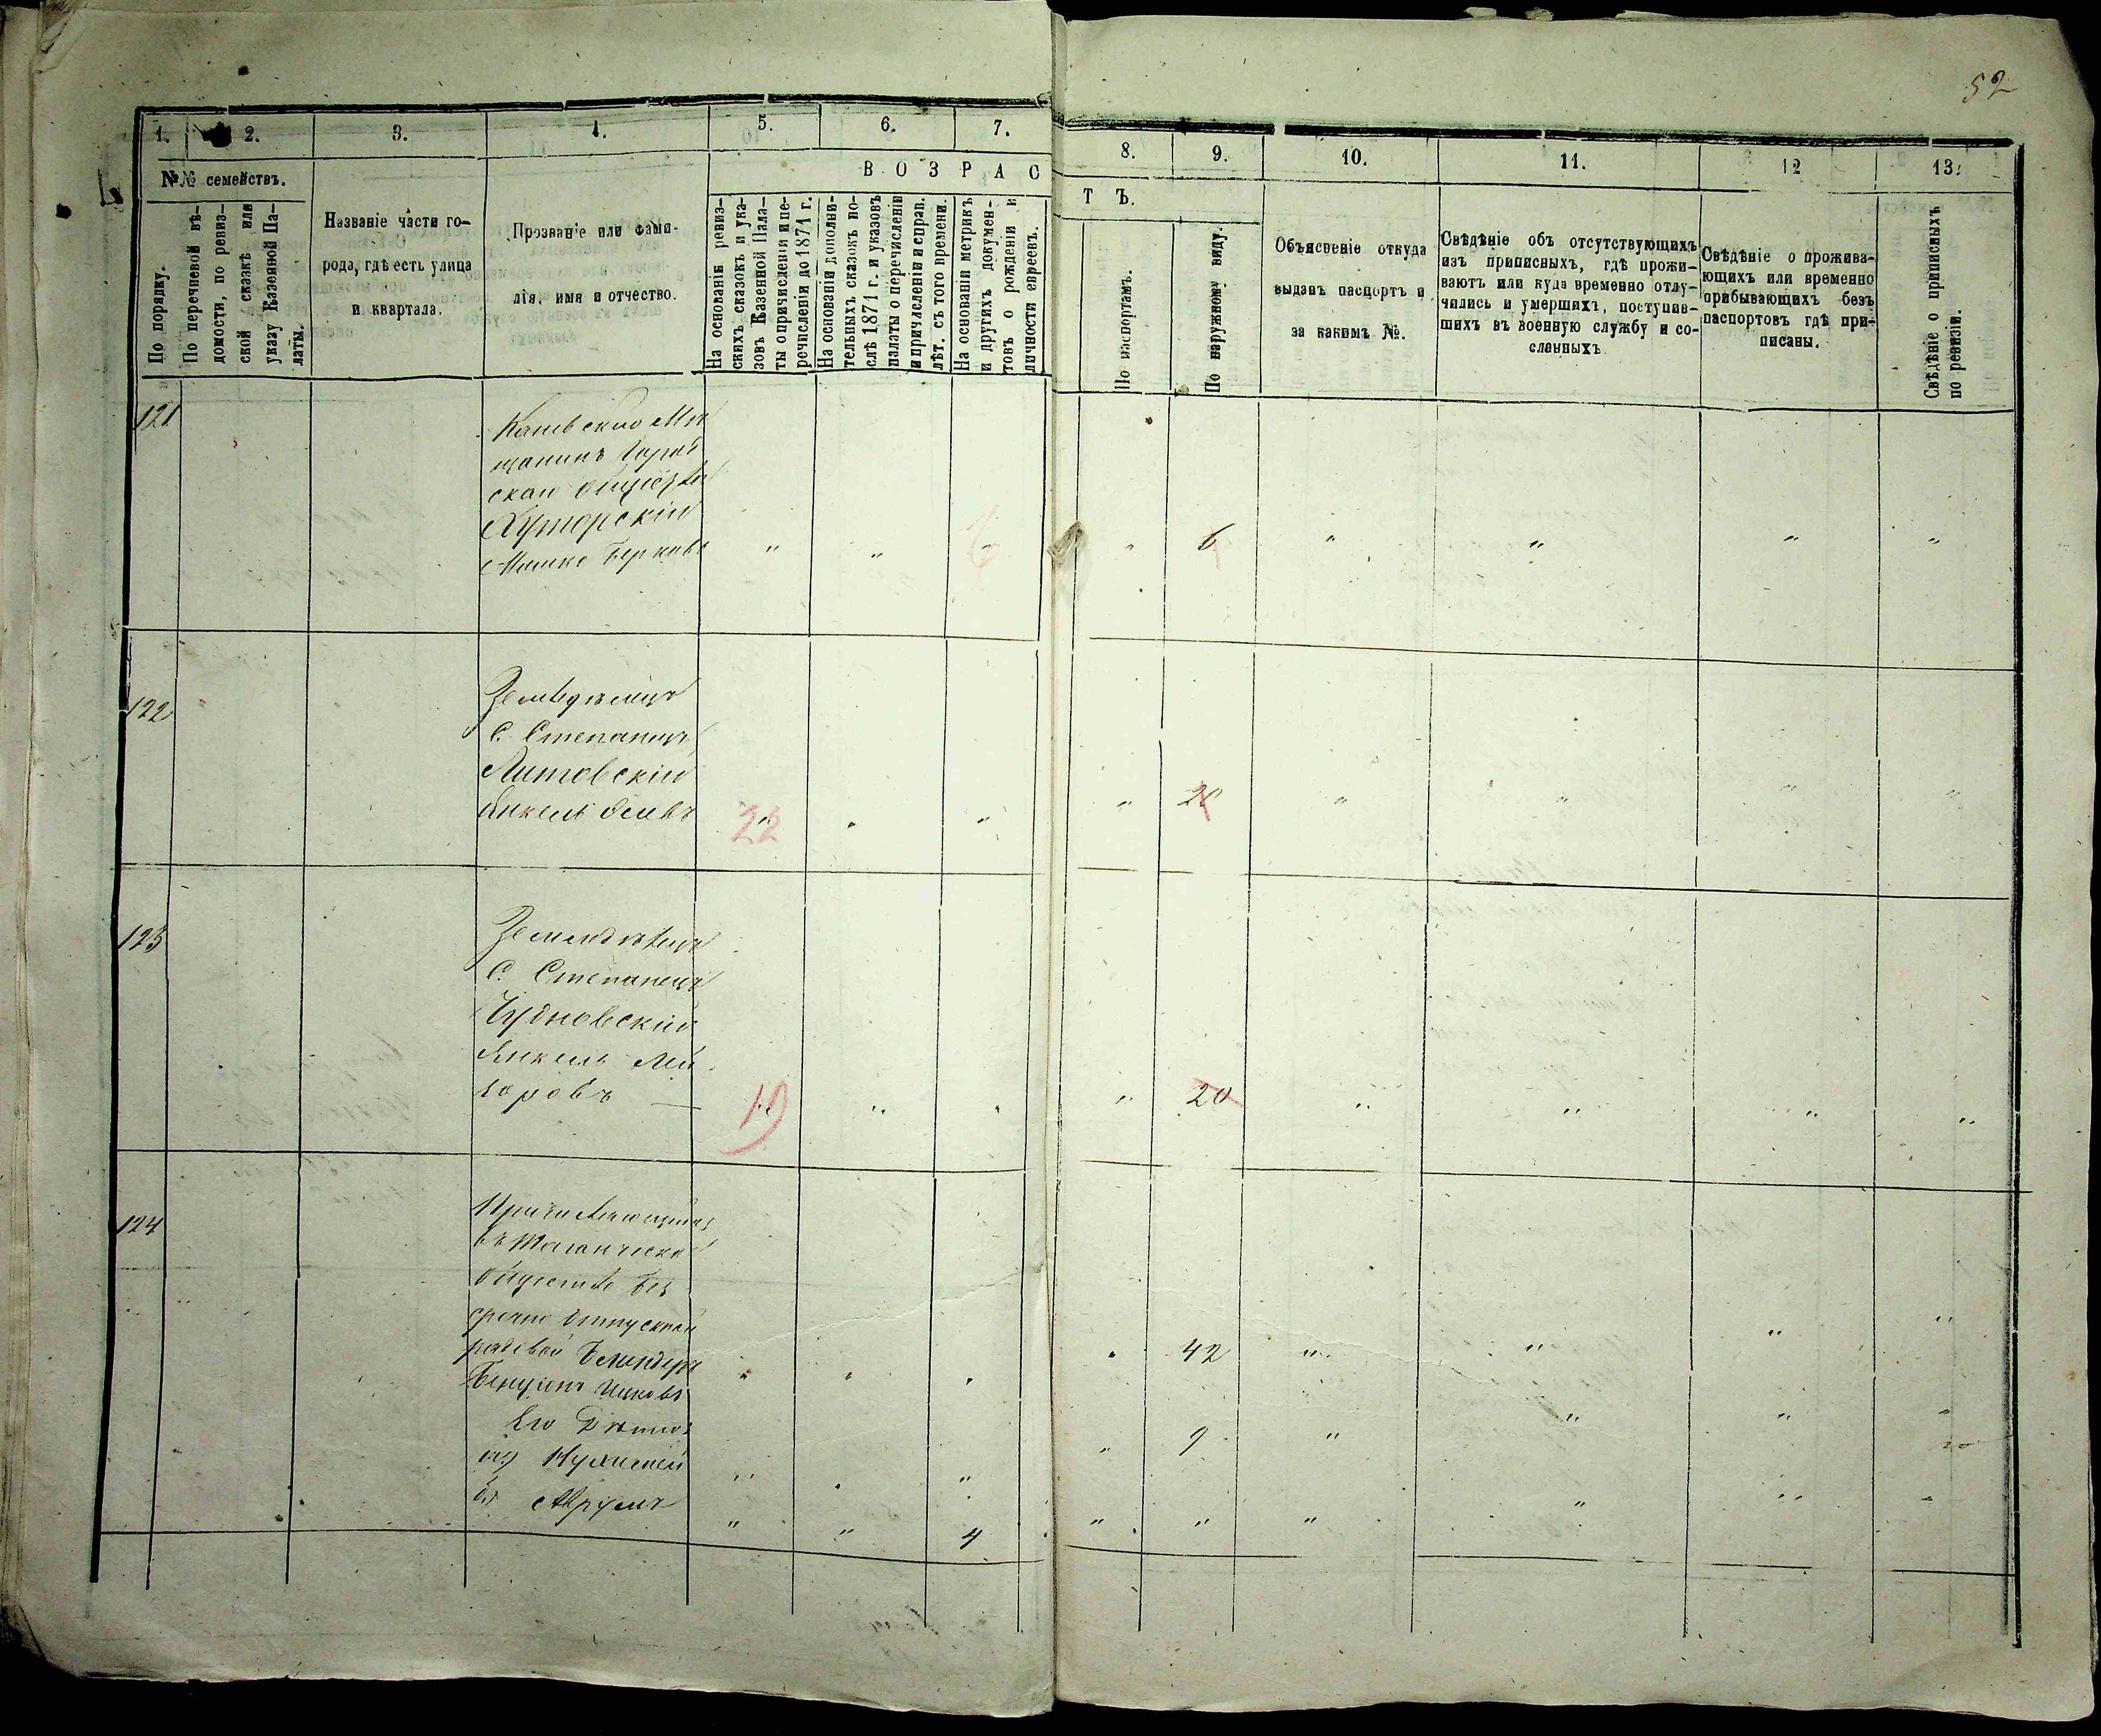 52
1. 2. 3. 4. 5. 6. 7. 8. 9. 10. 11. 12 13.
№№ семействъ.
По порядку.
По перечневой вѣ-
домости, по ревиз-
ской сказкѣ или
указу Казенной Па-
латы.
Названіе части го-
рода, гдѣ есть улица
и квартала.
Прозваніе или фами-
лія, имя и отчество.
ВОЗРАСТЪ.
На основаніи ревиз-
скихъ сказокъ и ука-
зовъ Казенной Пала-
ты о причисленіи и пе-
речисленіи до 1871 г.
На основаніи дополни-
тельныхъ сказокъ по-
слѣ 1871 г. и указовъ
палаты о перечисленіи
и причисленіи и справ.
лѣт. съ того времени.
На основаніи метрикъ
и другихъ докумен-
товъ о рожденіи и
личности евреевъ.
По паспортамъ.
По наружному виду.
Объясненіе откуда
выданъ паспортъ и
за какимъ №.
Свѣдѣніе объ отсутствующихъ
изъ приписныхъ, гдѣ прожи-
ваютъ или куда временно отлу-
чились и умершихъ, поступив-
шихъ въ военную службу и со-
сланныхъ
Свѣдѣніе о прожива-
ющихъ или временно
прибывающихъ безъ
паспортовъ гдѣ при-
писаны.
Свѣдѣніе о приписныхъ
по ревизіи.
121
щанинъ
Хуторскій
Мошко Берковъ " " " 6 " " " "
122
С. Степанецъ
Литовскій
Янкель 22 " " " 20 " " " "
123
С. Степанецъ
Чудновскій
Янкель Лей
19 " " " 20 " " " "
124
обществе Без
срочно отпускной
рядовой
Бенціонъ Ицковъ " " " " 42 " " " "
Его
" " " " 9 " " " "
Аврумъ " " 4 " " " " " "